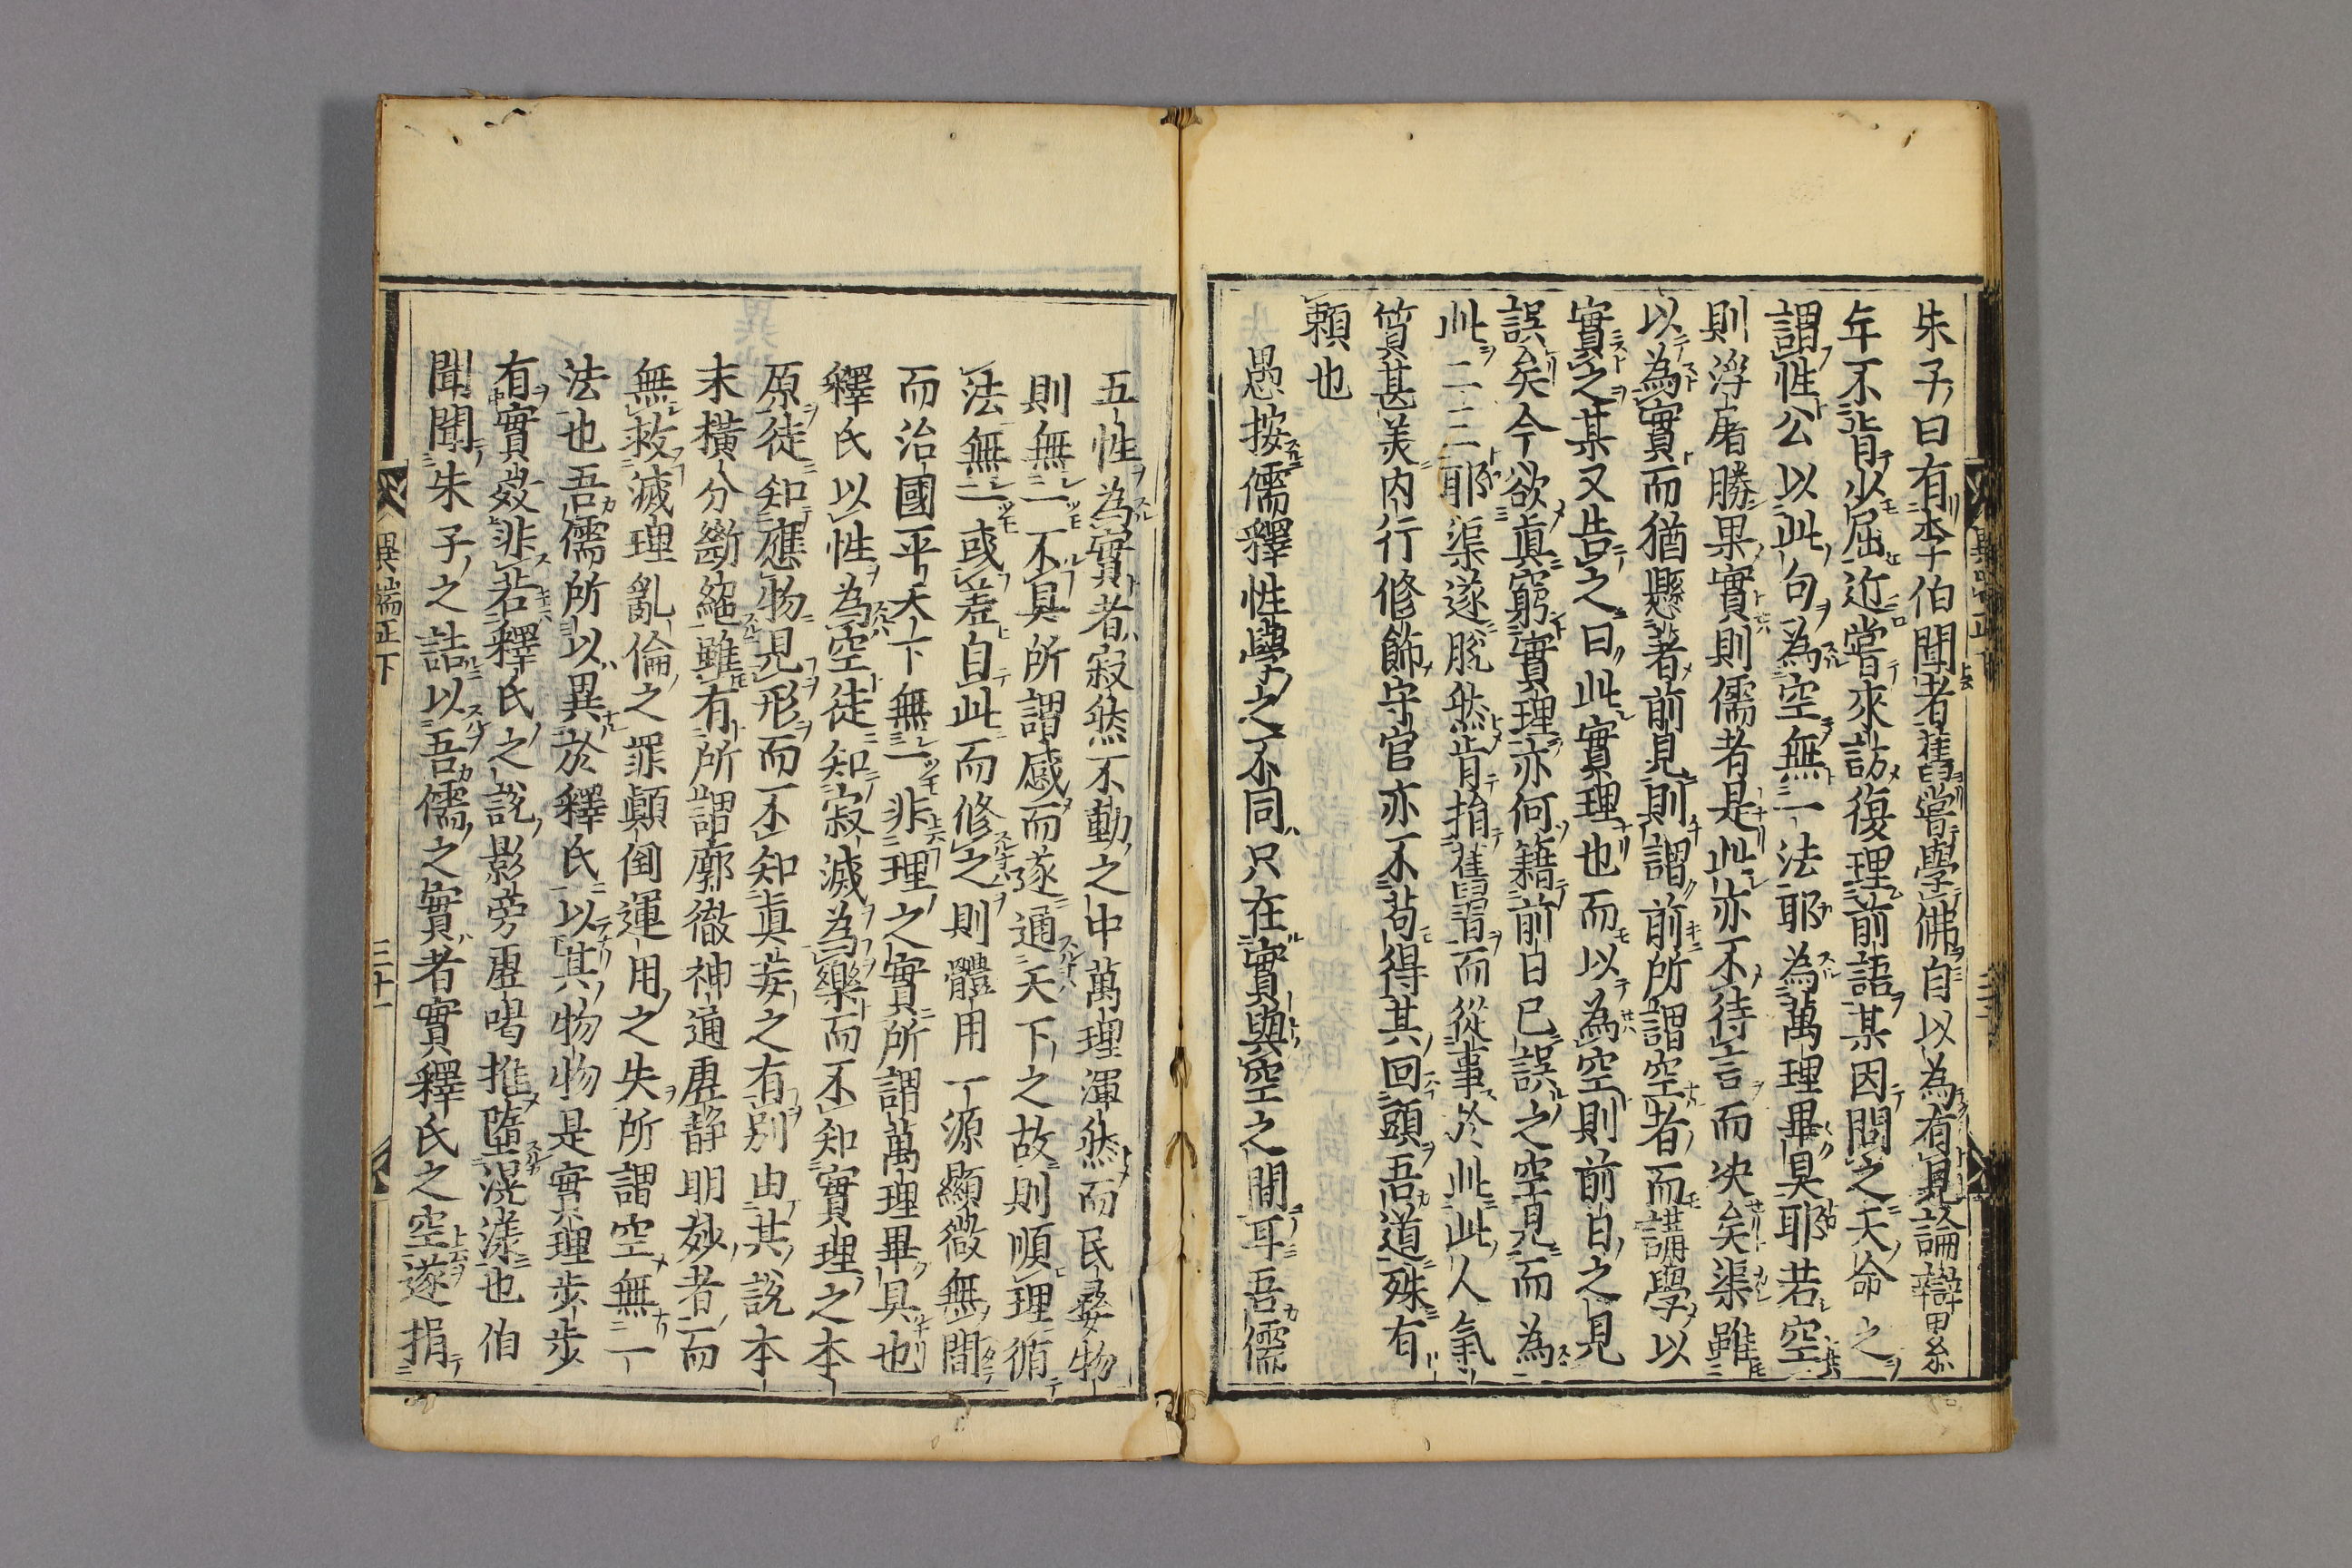 朱子曰有李伯聞者舊嘗學佛自以為有見論辯累
年不肯少屈近嘗來訪復理前語某因問之天命之
謂性公以此句為空無一法耶為萬理畢具耶若空
則浮屠勝果實則儒者是此亦不待言而决矣渠雖
以為實而猶戀著前見則謂前所謂空者而講學以
實之某又告之曰此實理也而以為空則前日之見
誤矣今欲真窮實理亦何籍前日已誤之空見而為
此二三耶渠遂脫然肯捐舊習而從事於此此人氣
質甚美内行修飾守官亦不苟得其回頭吾道殊有
頼也
愚按儒釋性學之不同只在實與空之間耳吾儒
五性為實者寂然不動之中萬理渾然而民彜物
則無一不具所謂感而遂通天下之故則順理循
法無一或差自此而修之則體用一源顯微無間
而治國平天下無一非理之實所謂萬理畢具也
釋氏以性為空徒知寂滅為樂而不知實理之本
原徒知應物見形而不知真妄之有別由其說本
末橫分斷絕雖有所謂廓徹神通虛静明妙者而
無救滅理亂倫之罪顛倒運用之失所謂空無一
法也吾儒所以異於釋氏以其物物是實理步步
有實效非若釋氏之說影旁虛喝推墮滉漾也伯
聞聞朱子之詰以吾儒之實者實釋氏之空遂捐
異端正下
三十一